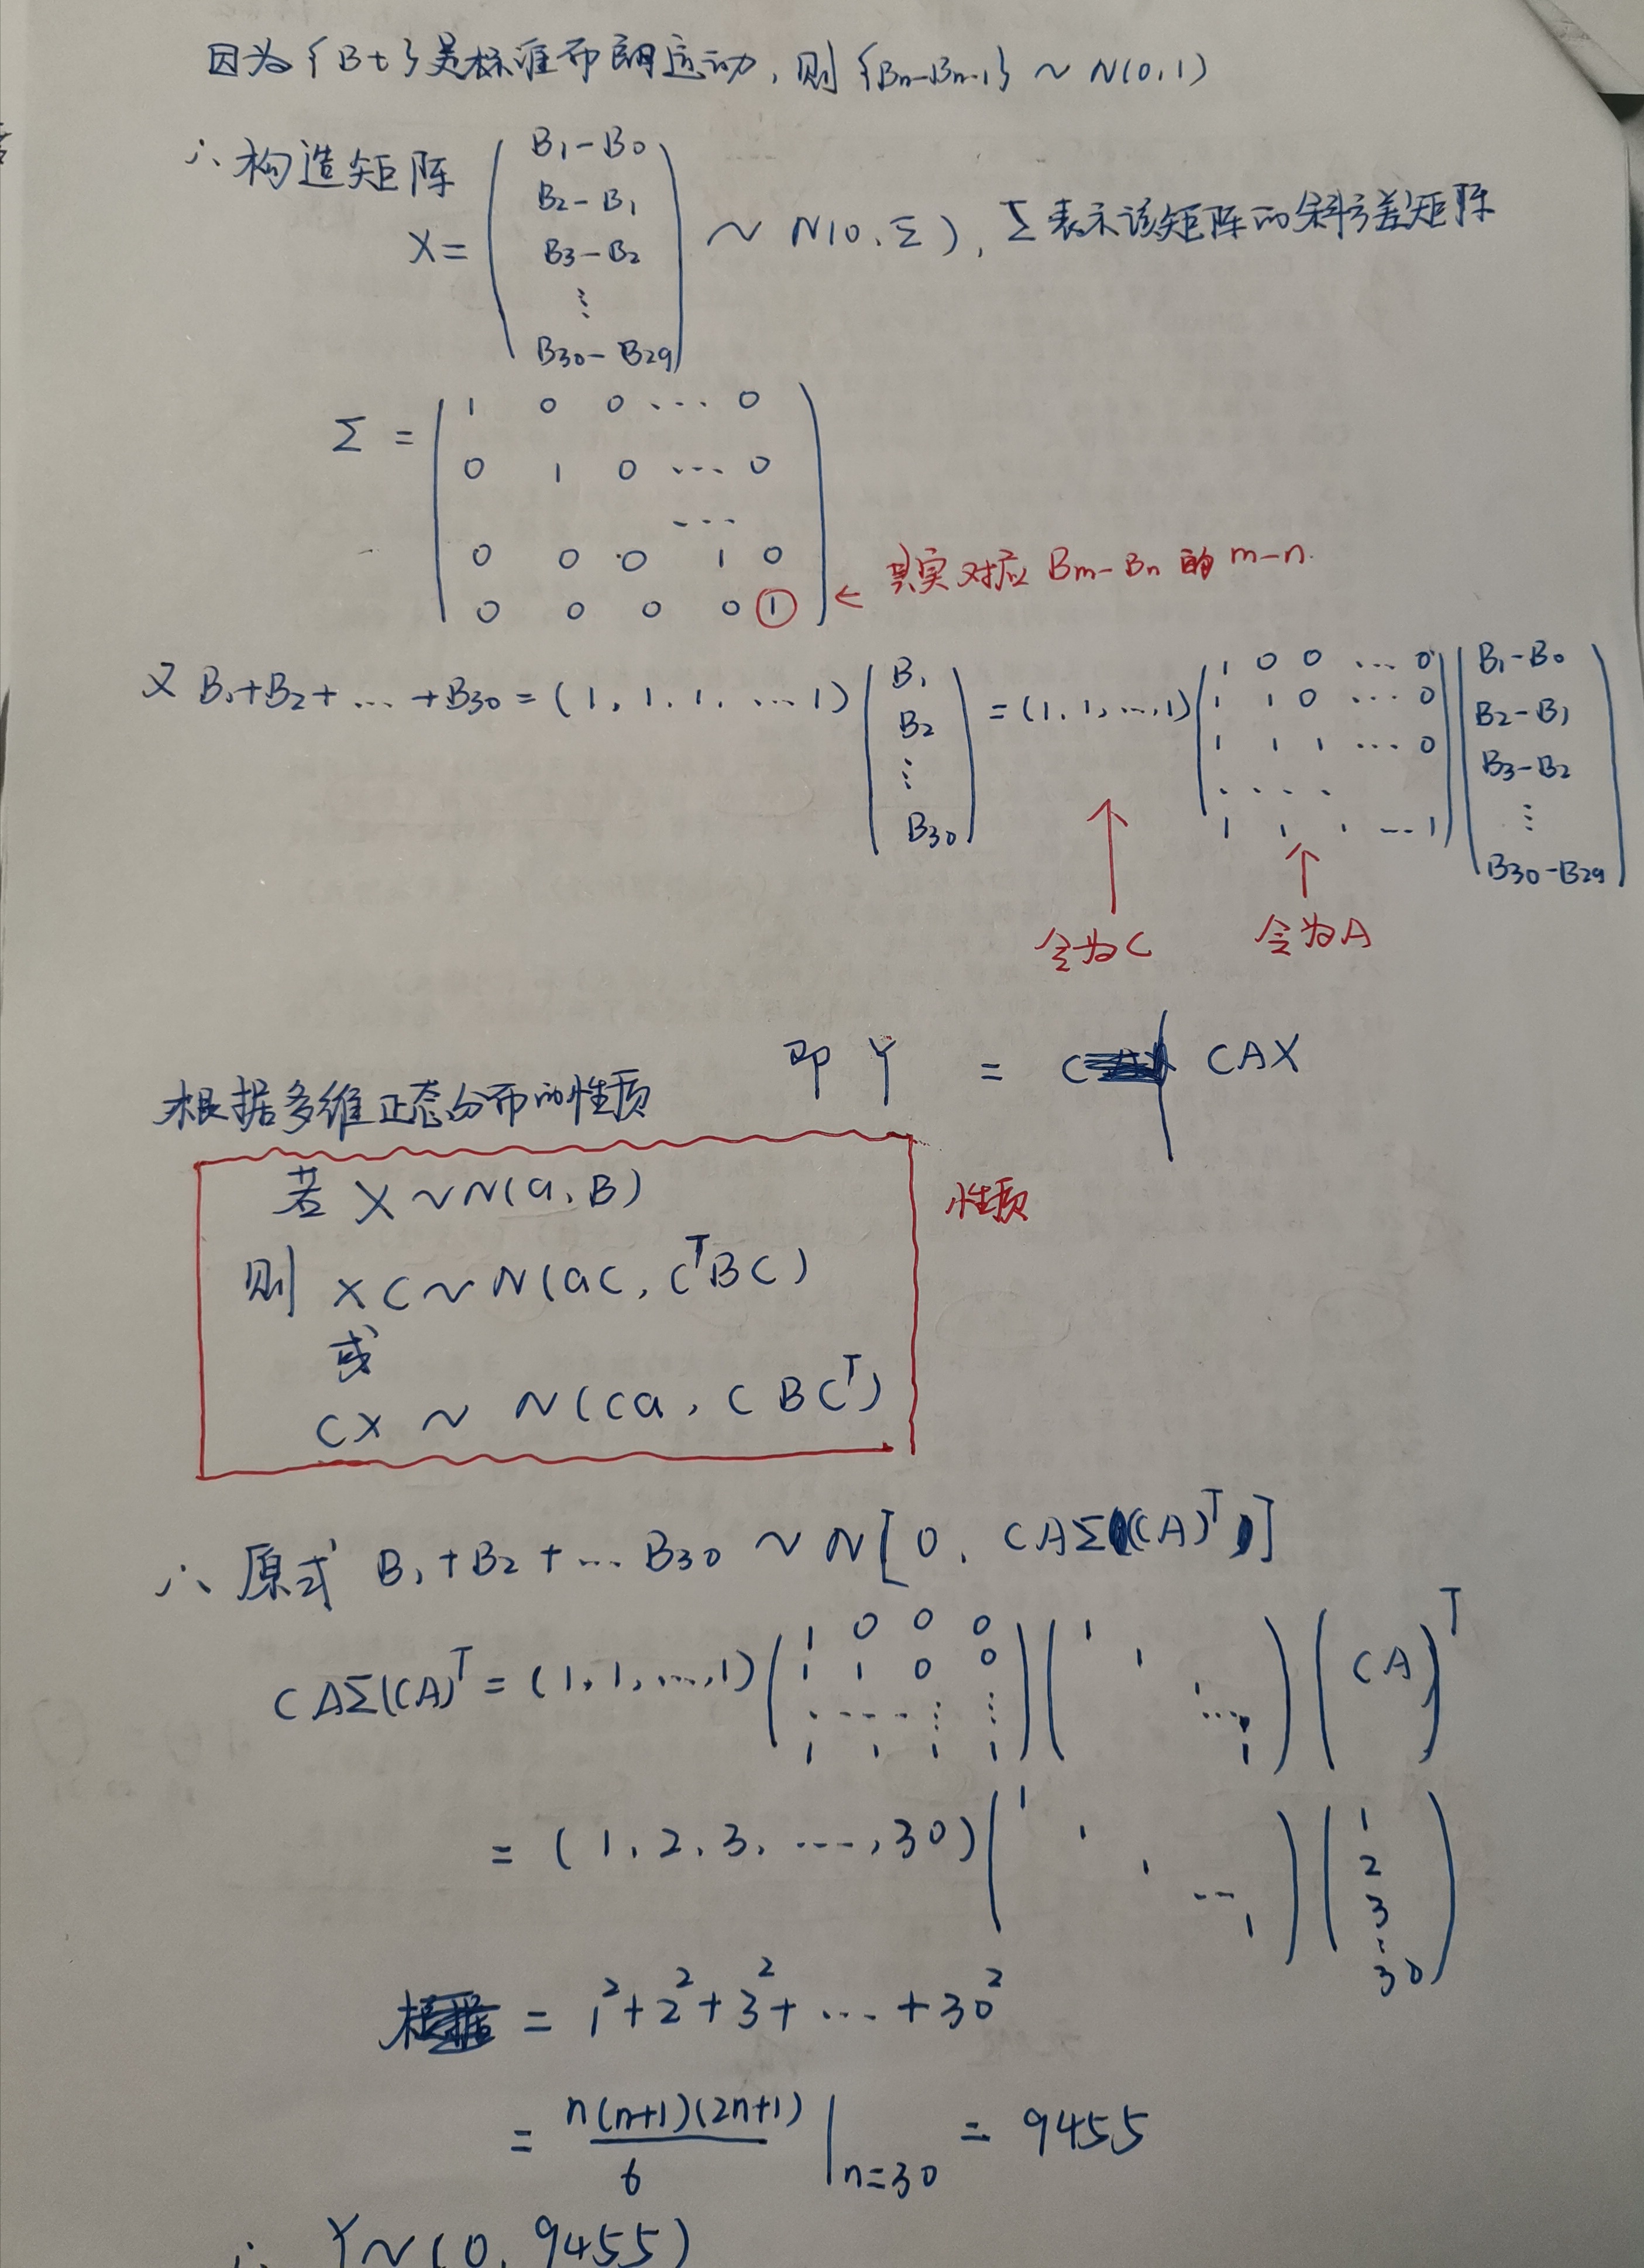 因为{Bt}是标准布朗运动，则{Bn-Bn-1} ~ N(0,1)
∴构造矩阵 X= ( B1-B0
B2-B1
B3-B2
⋮
B30-B29 ) ~ N(0, Σ), Σ表示该矩阵的协方差矩阵
Σ = ( 1 0 0 ... 0
0 1 0 ... 0
...
0 0 0 1 0
0 0 0 0 1 ) ← 其实对应 Bm-Bn 的 m-n.
又 B1+B2+...+B30 = (1,1,1,...1) ( B1 B2 ⋮ B30 ) = (1,1,...,1) ( 1 0 0 ... 0
1 1 0 ... 0
1 1 1 ... 0
....
1 1 1 ... 1 ) ( B1-B0
B2-B1
B3-B2
⋮
B30-B29 )
↑ 令为C
↑ 令为A
即 Y = CAX
根据多维正态分布的性质
若 X~N(a,B)
性质
则 XC~N(aC, C^T BC)
或
CX ~ N(Ca, CBC^T)
∴ 原式 B1+B2+...B30 ~ N[0, CAΣ(CA)^T]
CAΣ(CA)^T = (1,1,...,1) ( 1 0 0 0
1 1 0 0
.... ⋮ ⋮
1 1 1 1 ) ( 1 1 1 ... 1 ) (CA)^T
= (1,2,3,...,30) ( 1 1 1 ... 1 ) ( 1 2 3 ⋮ 30 )
= 1²+2²+3²+...+30²
= n(n+1)(2n+1)/6 |n=30 = 9455
∴ Y~(0,9455)